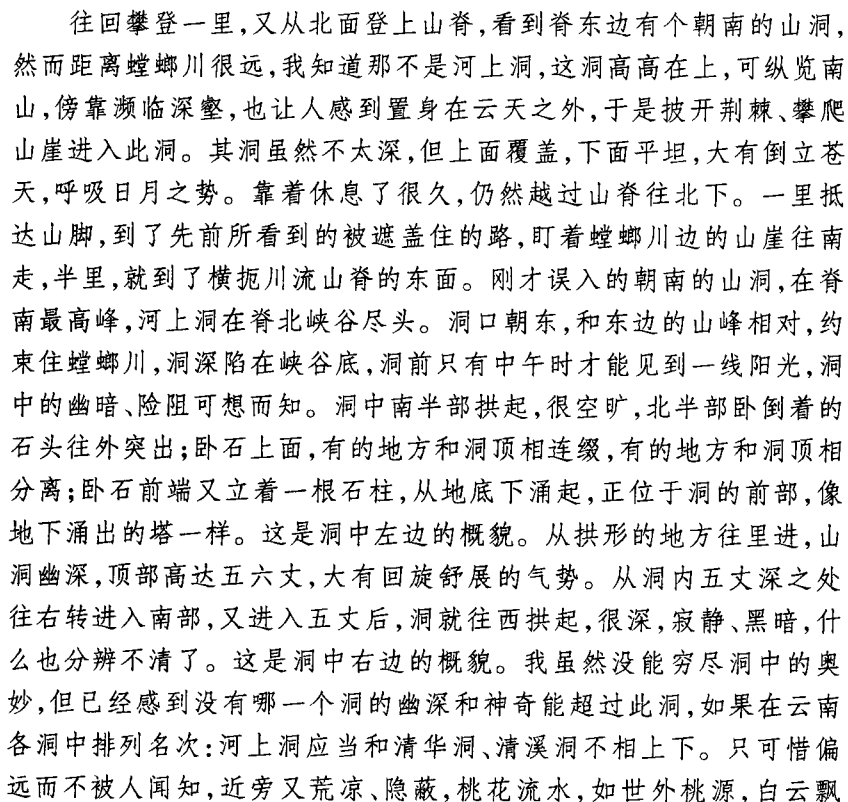 往回攀登一里，又从北面登上山脊，看到脊东边有个朝南的山洞，
然而距离螳螂川很远，我知道那不是河上洞，这洞高高在上，可纵览南
山，傍靠濒临深壑，也让人感到置身在云天之外，于是披开荆棘、攀爬
山崖进入此洞。其洞虽然不太深，但上面覆盖，下面平坦，大有倒立苍
天，呼吸日月之势。靠着休息了很久，仍然越过山脊往北下。一里抵
达山脚，到了先前所看到的被遮盖住的路，盯着螳螂川边的山崖往南
走，半里，就到了横扼川流山脊的东面。刚才误入的朝南的山洞，在脊
南最高峰，河上洞在脊北峡谷尽头。洞口朝东，和东边的山峰相对，约
束住螳螂川，洞深陷在峡谷底，洞前只有中午时才能见到一线阳光，洞
中的幽暗、险阻可想而知。洞中南半部拱起，很空旷，北半部卧倒着的
石头往外突出；卧石上面，有的地方和洞顶相连缀，有的地方和洞顶相
分离；卧石前端又立着一根石柱，从地底下涌起，正位于洞的前部，像
地下涌出的塔一样。这是洞中左边的概貌。从拱形的地方往里进，山
洞幽深，顶部高达五六丈，大有回旋舒展的气势。从洞内五丈深之处
往右转进入南部，又进入五丈后，洞就往西拱起，很深，寂静、黑暗，什
么也分辨不清了。这是洞中右边的概貌。我虽然没能穷尽洞中的奥
妙，但已经感到没有哪一个洞的幽深和神奇能超过此洞，如果在云南
各洞中排列名次：河上洞应当和清华洞、清溪洞不相上下。只可惜偏
远而不被人闻知，近旁又荒凉、隐蔽，桃花流水，如世外桃源，白云飘